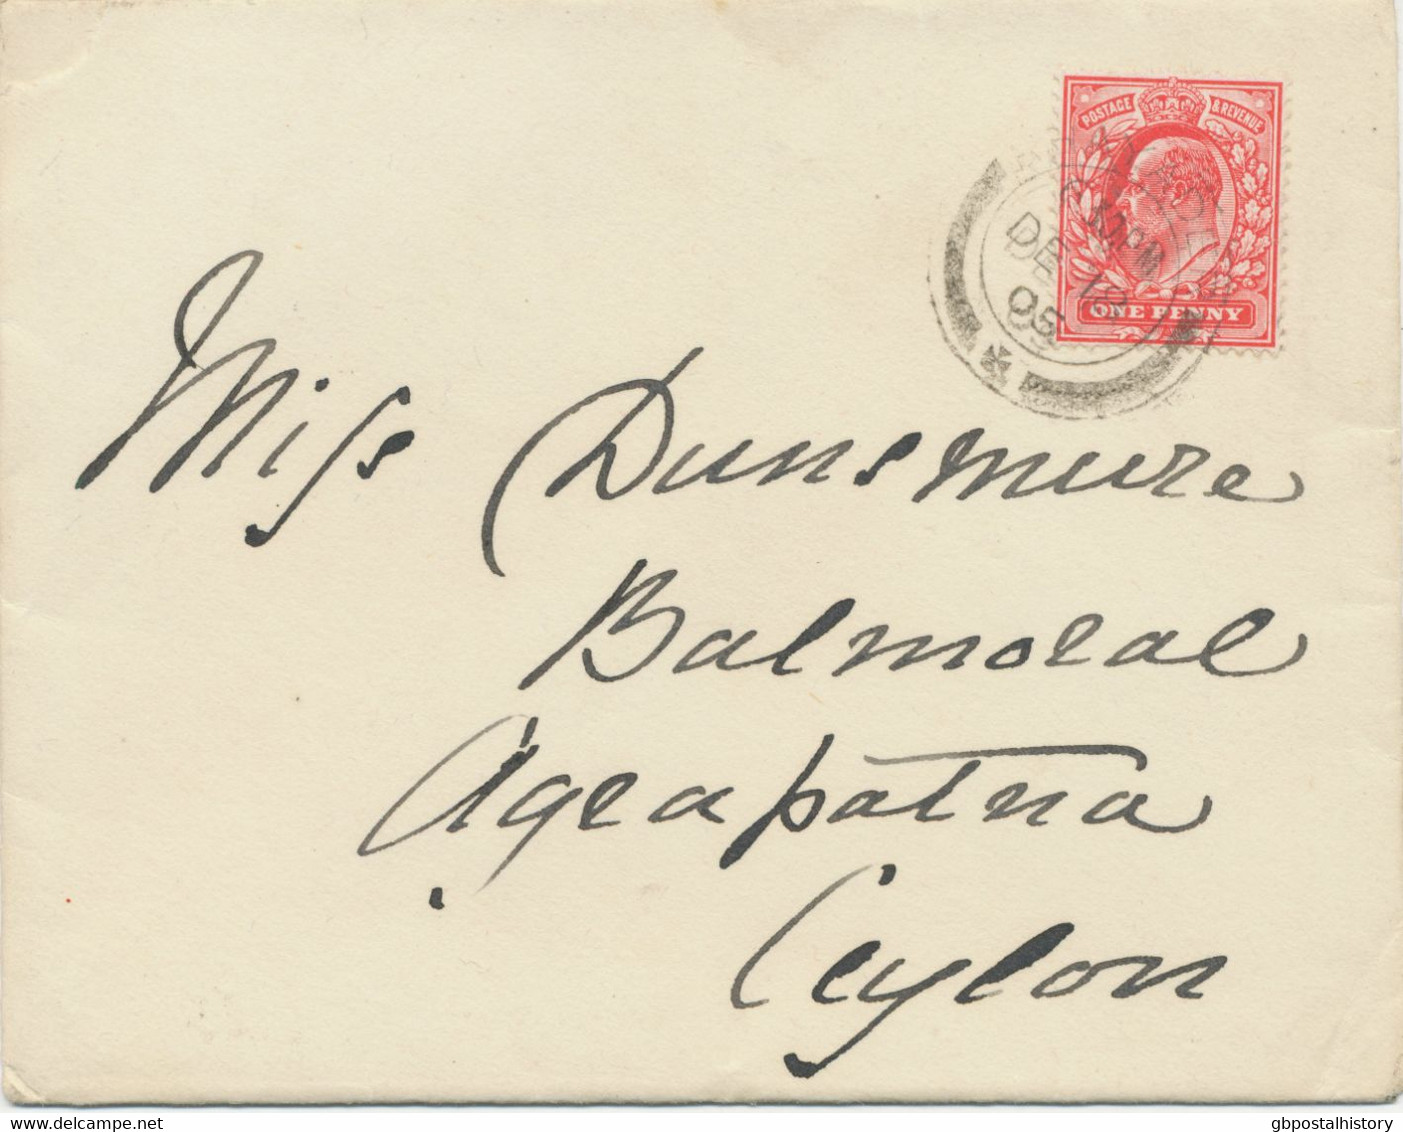 POSTAGE & REVENUE
DE 12
05
ONE PENNY
Miss Dunsmure
Balmoral
Agrapatna
Ceylon
www.delcampe.net
gbpostalhistory